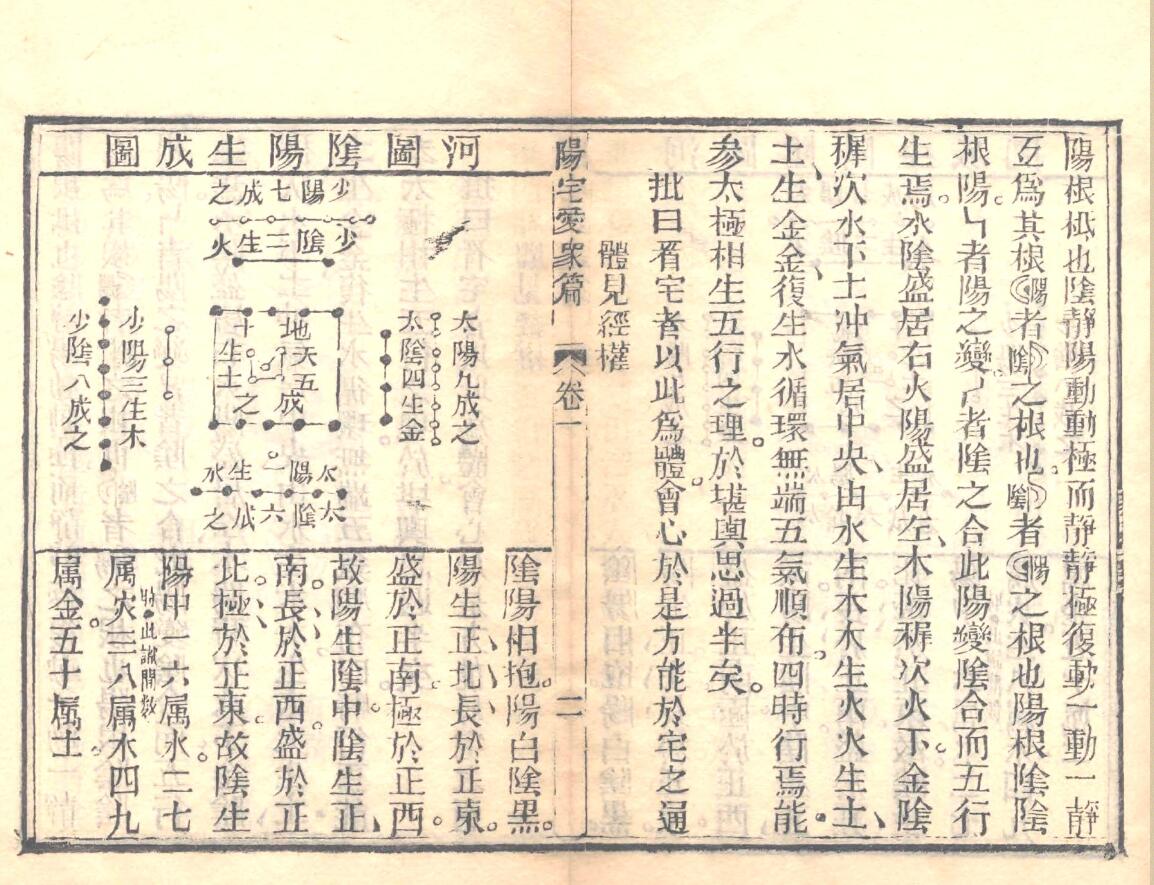 陽根柢也陰靜陽動動極而靜靜極復動一動一靜
互爲其根 陽者陰之根也 陰者陽之根也陽根陰陰
根陽乀者陽之變 者陰之合此陽變陰合而五行
生焉水陰盛居右火陽盛居左木陽穉次火下金陰
穉次水下土冲氣居中央由水生木木生火火生土
土生金金復生水循環無端五氣順布四時行焉能
參太極相生五行之理於堪輿思過半矣
批曰看宅者以此爲體會心於是方能於宅之通
體見經權
陽宅愛眾篇 卷一 二
河圖陰陽生成圖
少陽七成之
少陰二生火
太陽九成之
太陰四生金
地天五成
十生土之
少陽三生木
少陰八成之
太陽一生水
太陰六成之
陰陽相抱陽白陰黑
陽生正北長於正東
盛於正南極於正西
故陽生陰中陰生正
南長於正西盛於正
北極於正東故陰生
陽中一六属水二七
属火三八属木四九
特此識開数
属金五十属土